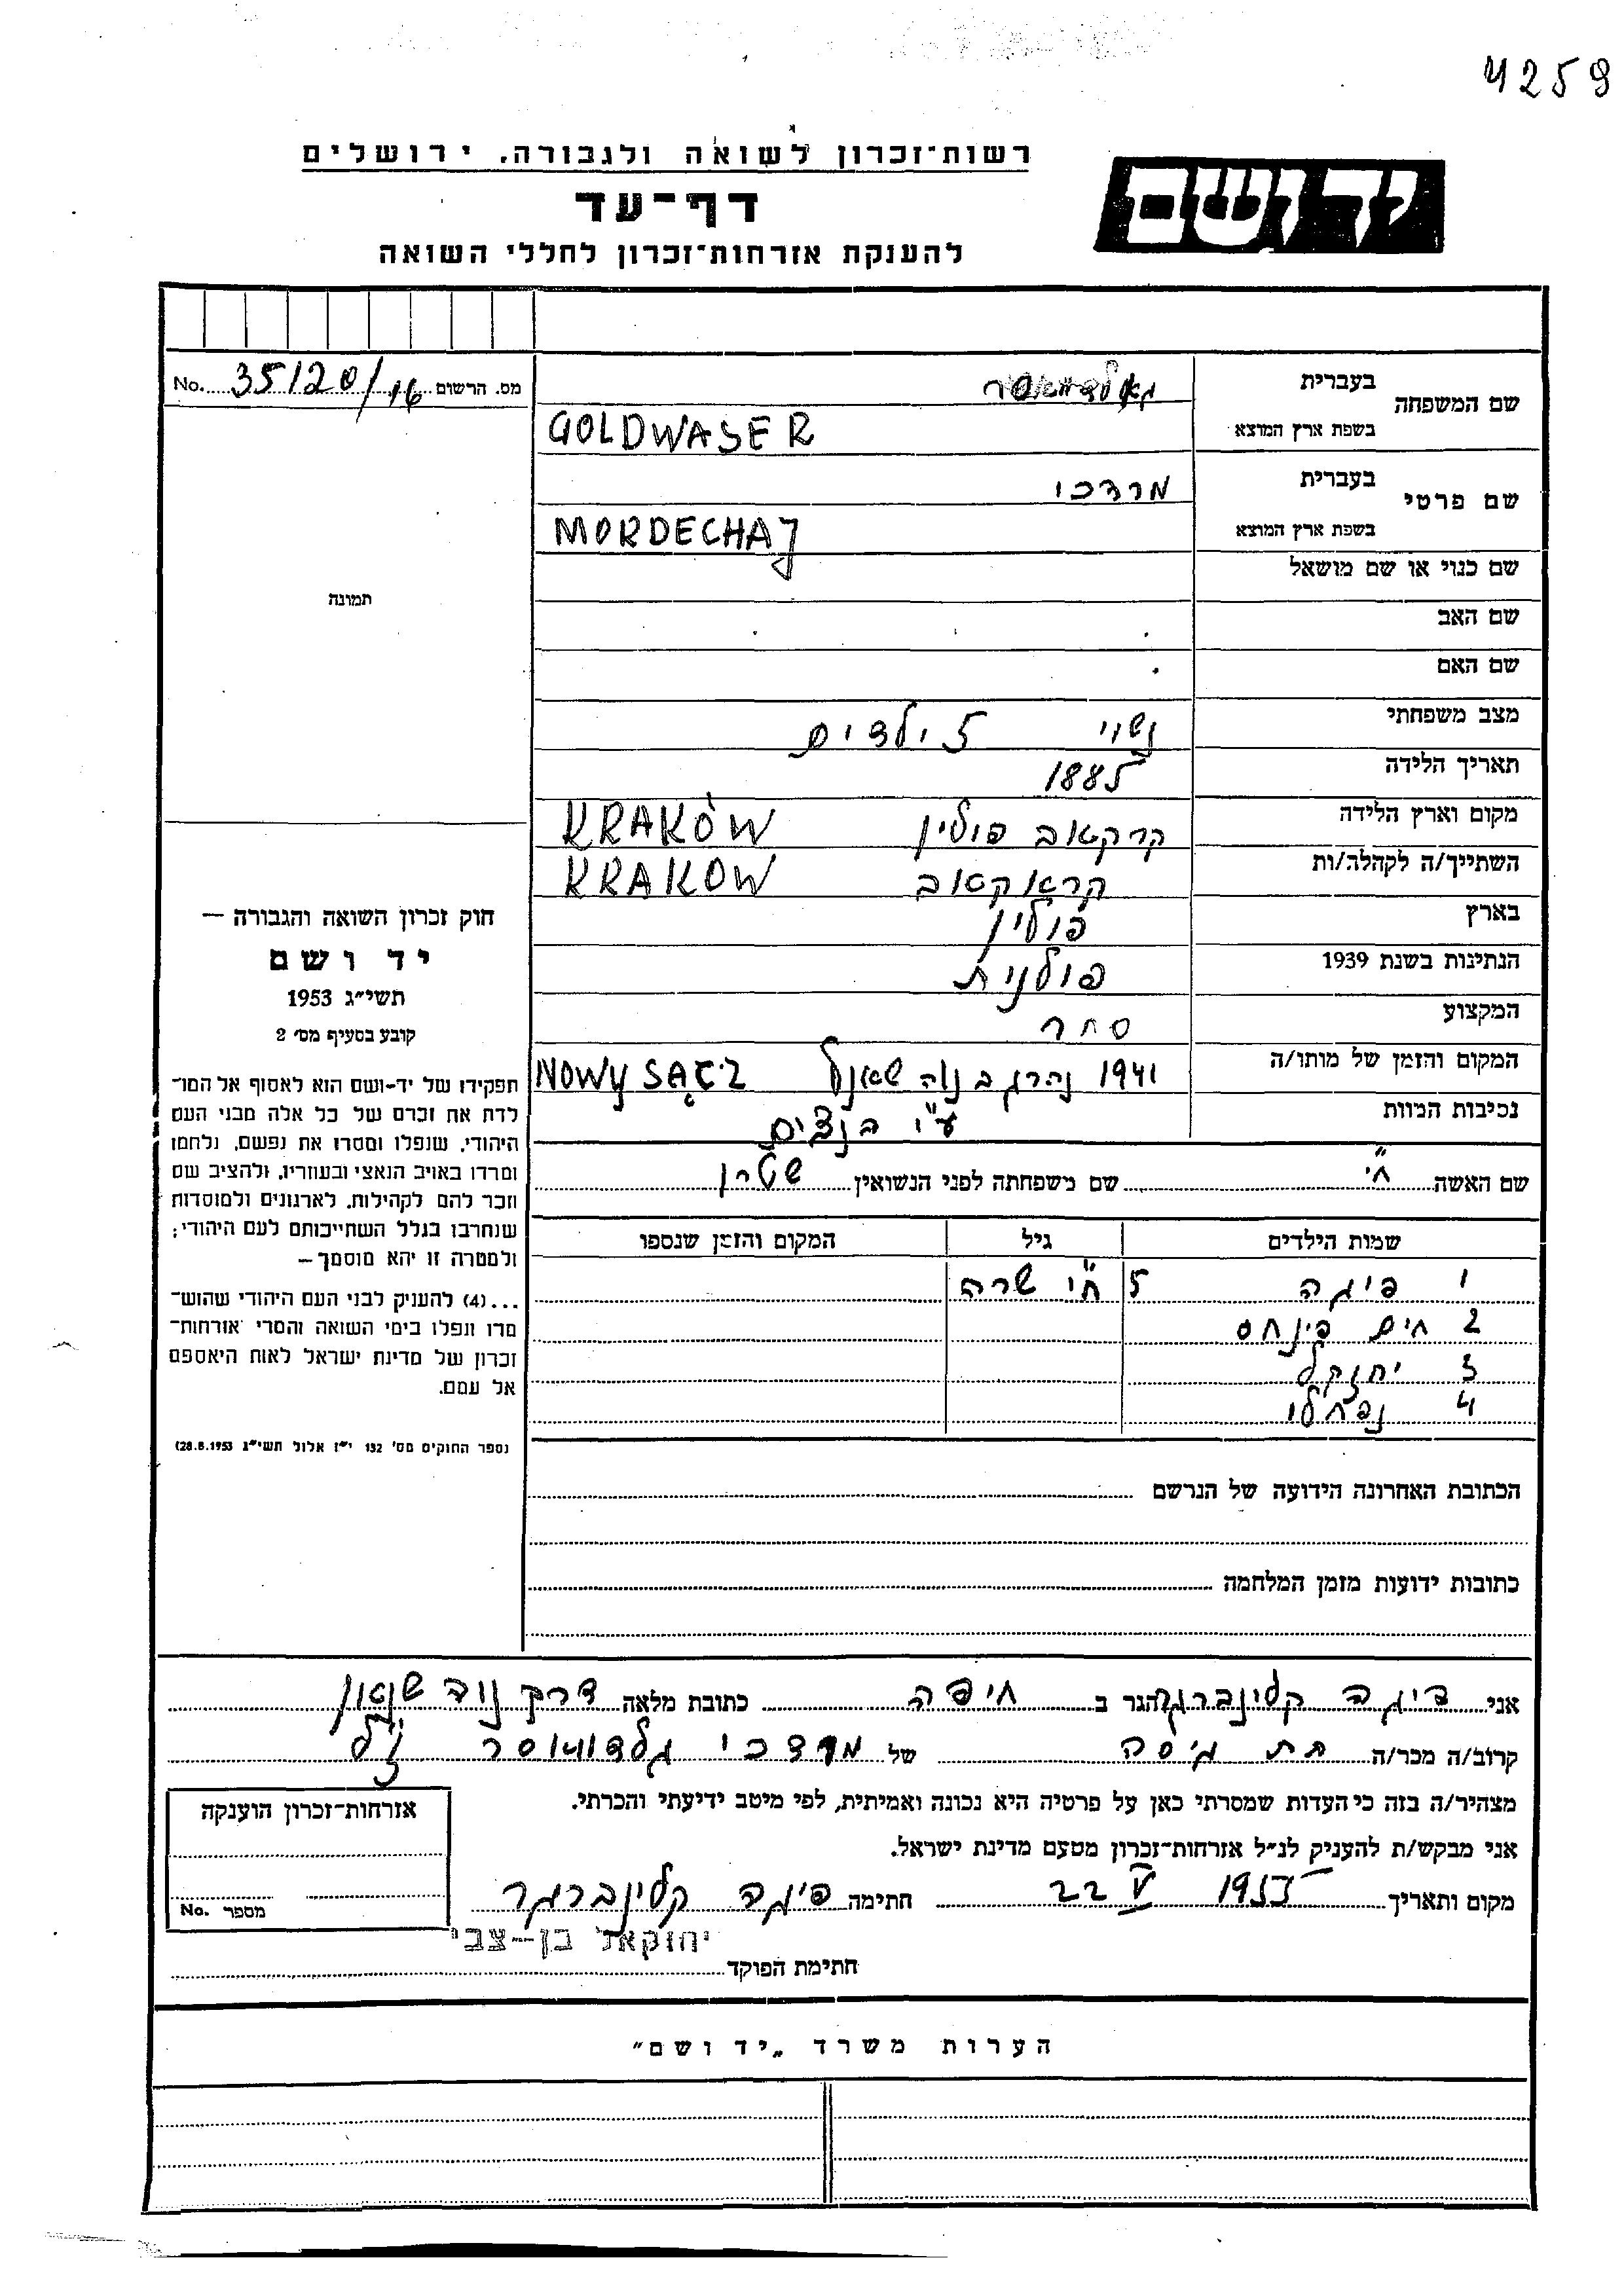 4259
רשות־זכרון לשואה ולגבורה. ירושלים
יד ושם
דף־עד
להענקת אזרחות־זכרון לחללי השואה
מס. הרשום 35120/16 No.
שם המשפחה
בעברית
בשפת ארץ המוצא GOLDWASER
שם פרטי
בעברית מרדכי
בשפת ארץ המוצא MORDECHAJ
שם כנוי או שם מושאל
תמונה
שם האב
שם האם
מצב משפחתי נשוי 5 ילדים
תאריך הלידה 1885
מקום וארץ הלידה קרקאוב פולין KRAKÓW
השתייך/ה לקהלה/ות קראקאוב KRAKOW
בארץ פולין
הנתינות בשנת 1939 פולנית
המקצוע סחר
המקום והזמן של מותו/ה 1941 נהרג ב נוה שאנץ NOWY SĄCZ
נסיבות המוות ע"י הנצים
שם האשה חי' שם משפחתה לפני הנשואין שטרן
שמות הילדים גיל המקום והזמן שנספו
1 פיגה 5 חי' שרה
2 חים פינחס
3 יחזקל
4 נפתלי
חוק זכרון השואה והגבורה —
יד ושם
תשי״ג 1953
קובע בסעיף מס׳ 2
תפקידו של יד-ושם הוא לאסוף אל המו־
לדת את זכרם של כל אלה מבני העם
היהודי, שנפלו ומסרו את נפשם, נלחמו
ומרדו באויב הנאצי ובעוזריו, ולהציב שם
וזכר להם לקהילות, לארגונים ולמוסדות
שנחרבו בגלל השתייכותם לעם היהודי;
ולמטרה זו יהא מוסמך —
...(4) להעניק לבני העם היהודי שהוש־
מדו ונפלו בימי השואה והמרי אזרחות־
זכרון של מדינת ישראל לאות היאספם
אל עמם.
(ספר החוקים מס׳ 132 י״ז אלול תשי״ג 28.8.1953)
הכתובת האחרונה הידועה של הנרשם
כתובות ידועות מזמן המלחמה
אני פיגה קלינברגר הגר ב חיפה כתובת מלאה דרך נוה שאנן
קרוב/ה מכר/ה של מרדכי גלדוואסר ז"ל
מצהיר/ה בזה כי העדות שמסרתי כאן על פרטיה היא נכונה ואמיתית, לפי מיטב ידיעתי והכרתי.
אני מבקש/ת להעניק לנ״ל אזרחות־זכרון מטעם מדינת ישראל.
מקום ותאריך 22 V חתימה פיגה קלינברגר
אזרחות־זכרון הוענקה
מספר No.
יחזקאל בן-צבי
חתימת הפוקד
הערות משרד „יד ושם״